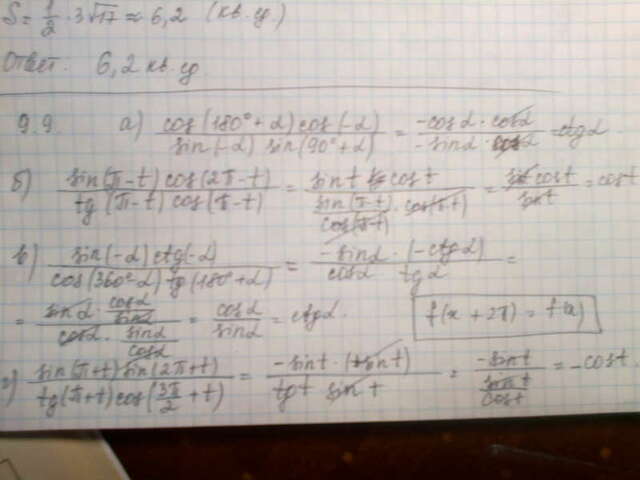 S = 1/2 · 3√17 ≈ 6,2 (кв. ед.)
Ответ. 6,2 кв. ед.
9.9. а) cos(180°+α) cos(-α) / sin(-α) sin(90°+α) = -cosα · cosα / -sinα · cosα = ctgα
б) sin(π-t) cos(2π-t) / tg(π-t) cos(π-t) = sint cost / sin(π-t)/cos(π-t) · cos(π-t) = sint cost / sint = cost
в) sin(-α) ctg(-α) / cos(360°-α) tg(180°+α) = -sinα · (-ctgα) / cosα tgα =
= sinα · cosα/sinα / cosα · sinα/cosα = cosα / sinα = ctgα. f(x + 2π) = f(x)
г) sin(π+t) sin(2π+t) / tg(π+t) cos(3π/2 + t) = -sint · (sint) / tgt sint = -sint / sint/cost = -cost.